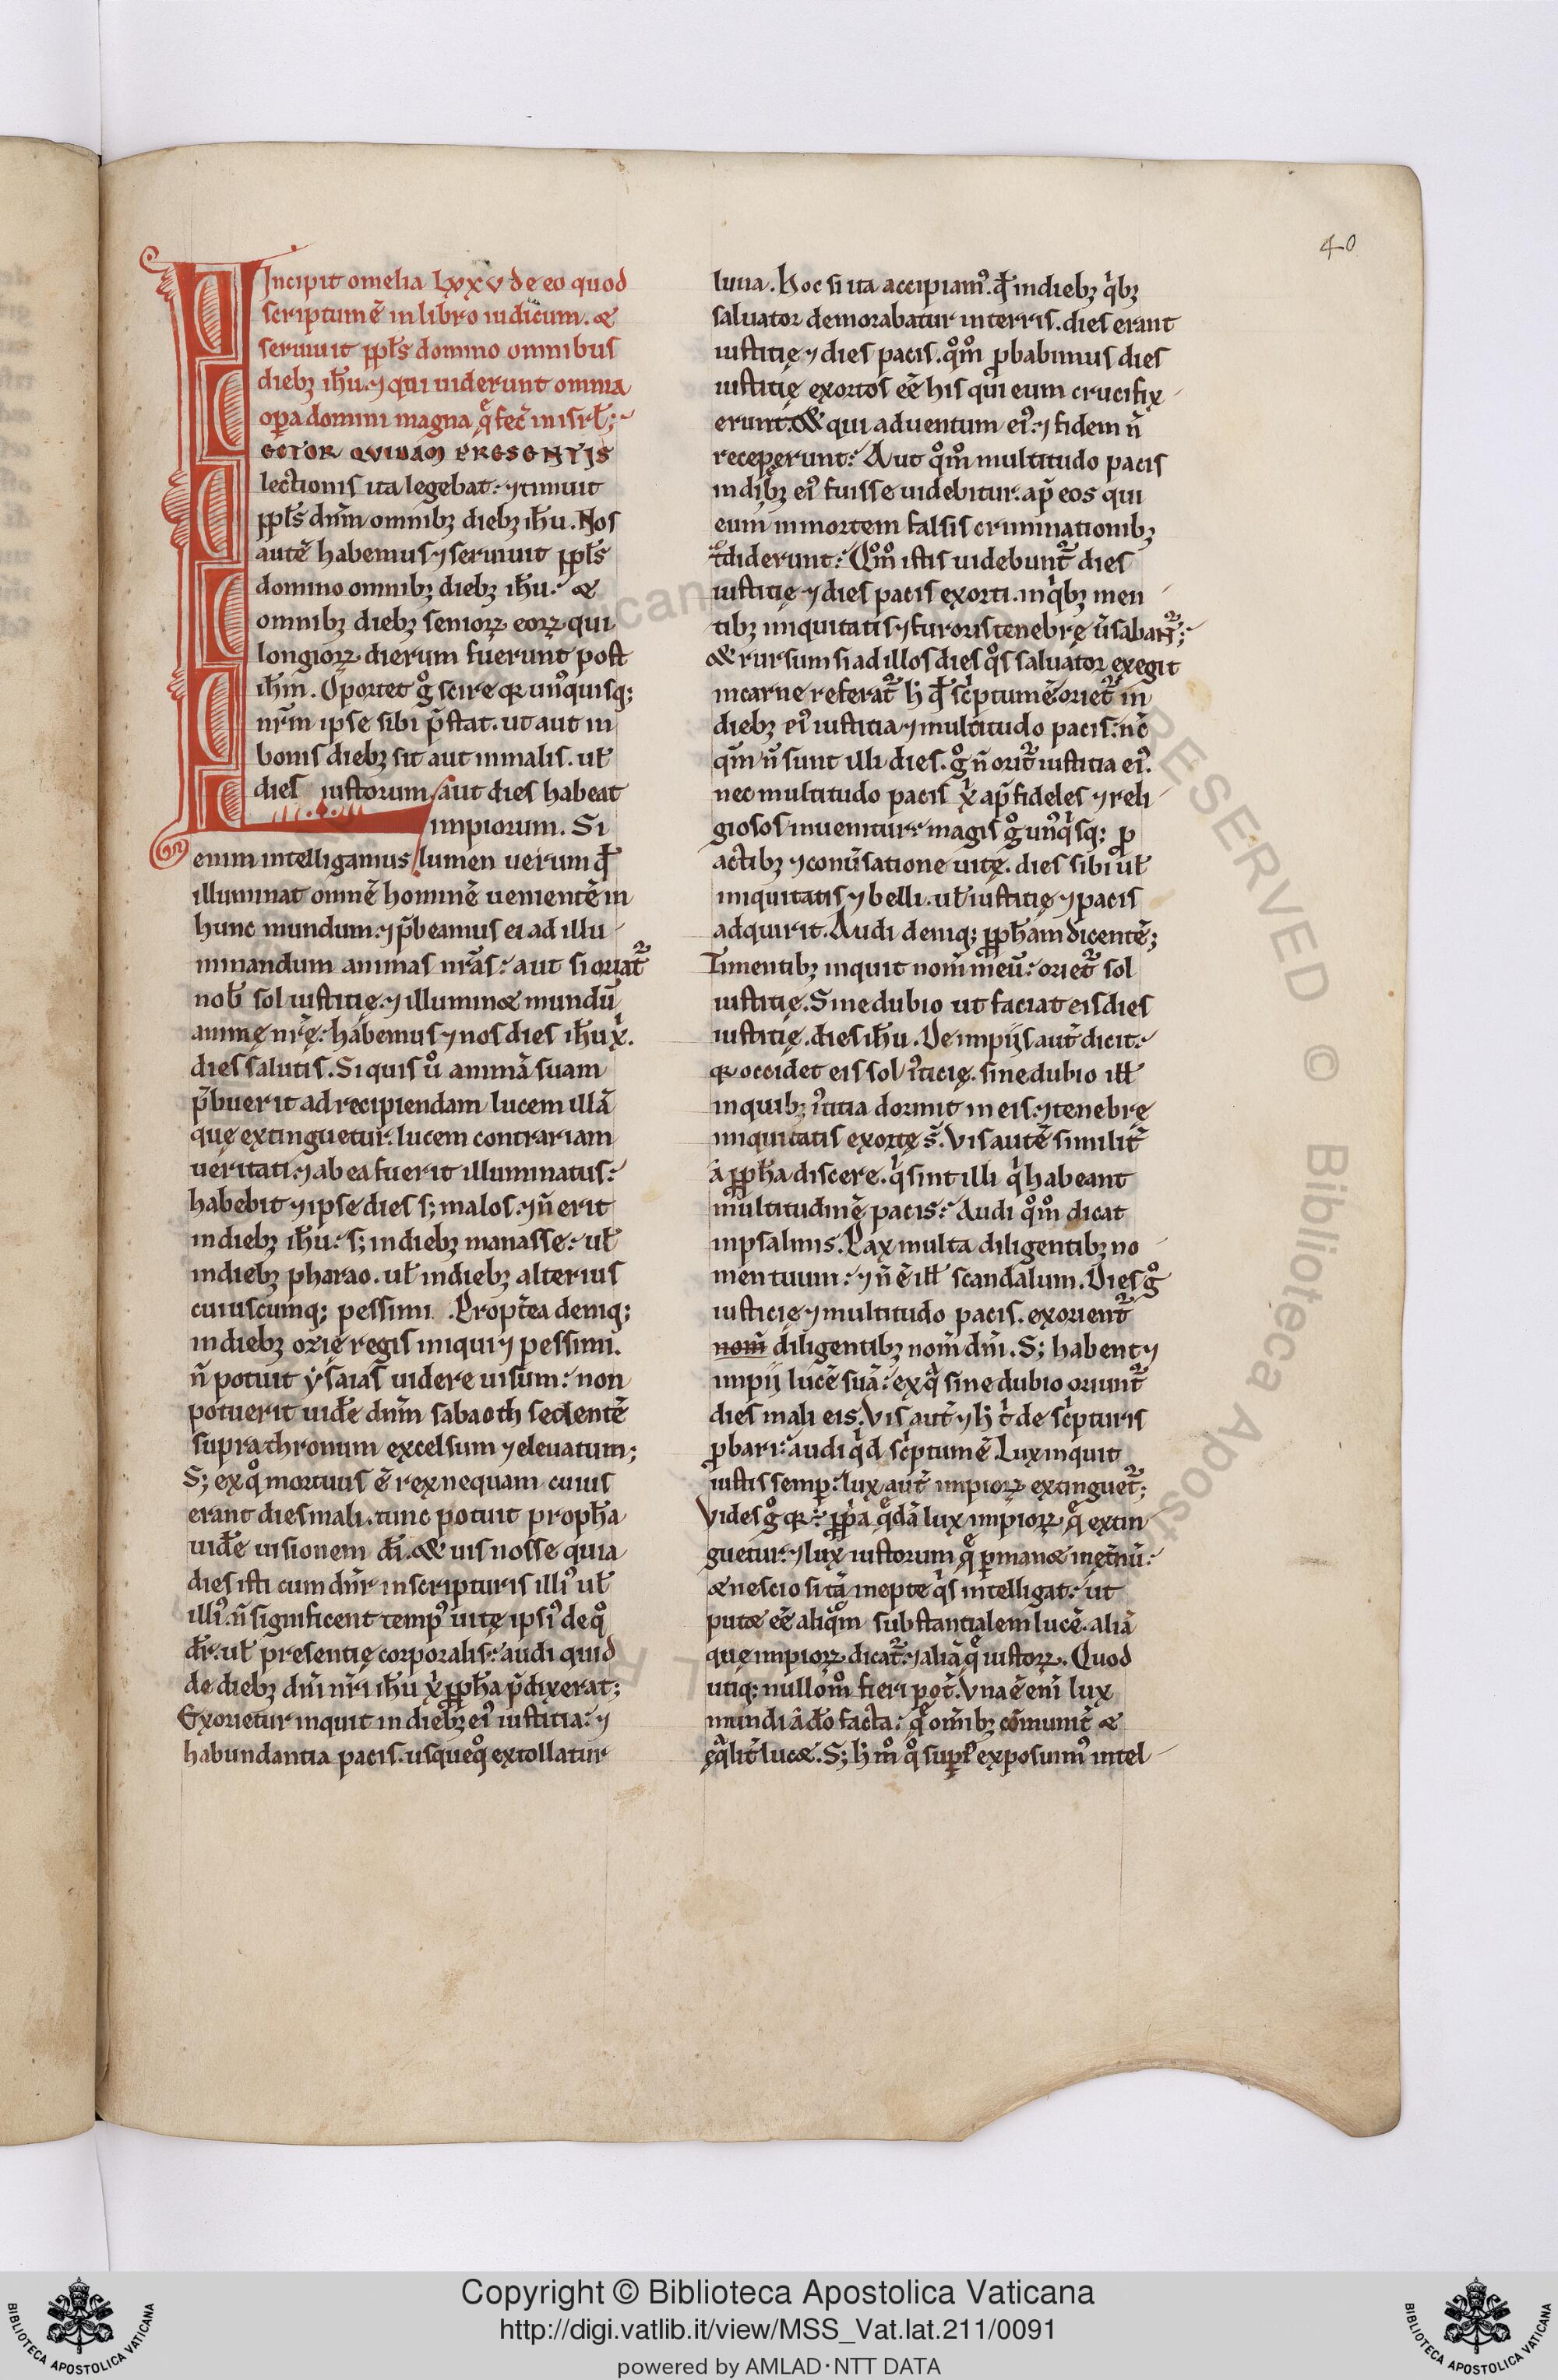 40
Incipit omelia LXXV de eo quod
scriptum ē in libro iudicum. &
seruiuit ppl̄s domino omnibus
dieb; ih̄u. ⁊ qui uiderunt omnia
opa domini magna q̄ fec̄ in isrl̄;
LECTOR QUIDAM PRESENTIS
lectionis ita legebat. ⁊ timuit
ppl̄s dn̄m omnib; dieb; ih̄u. Nos
autē habemus ⁊ seruiuit ppl̄s
domino omnib; dieb; ih̄u. &
omnib; dieb; senioꝝ eoꝝ qui
longioꝝ dierum fuerunt post
ih̄m. Oportet gͦ scire qr unꝰquisq;
nr̄m ipse sibi p̄stat. ut aut in
bonis dieb; sit aut in malis. ul̄
dies iustorum aut dies habeat
impiorum. Si
enim intelligamus lumen uerum qđ
illuminat omnē hominē uenientē in
hunc mundum. ⁊ p̄beamus ei ad illu
minandum animas nr̄as. aut si oriat᷑
nob̄ sol iustitię. ⁊ illumin& mundū
animę nr̄ę. habemus ⁊ nos dies ih̄u xp̄i.
dies salutis. Si quis ů animā suam
p̄buerit ad recipiendam lucem illā
quę extinguetur. lucem contrariam
ueritati. ⁊ ab ea fuerit illuminatus.
habebit ⁊ ipse dies s; malos. ⁊ n̄ erit
in dieb; ih̄u. s; in dieb; manasse. ul̄
in dieb; pharao. ul̄ in dieb; alterius
cuiuscumq; pessimi. Propt̄ea deniq;
in dieb; orię regis iniqui ⁊ pessimi.
n̄ potuit ysaias uidere uisum. non
potuerit uid̄e dn̄m sabaoth sedentē
supra thronum excelsum ⁊ eleuatum;
S; ex qͦ mortuus ē rex nequam cuius
erant dies mali. tunc potuit proph̄a
uid̄e uisionem d̄i. & uis nosse quia
dies isti cum dn̄r in scripturis illiꝰ ul̄
illiꝰ. n̄ significent tempꝰ uitę ipsiꝰ de qͦ
dr̄. ul̄ presentię corporalis. audi quid
de dieb; dn̄i nr̄i ih̄u xp̄i pph̄a p̄dixerat;
Exorietur inquit in dieb; eiꝰ iustitia. ⁊
habundantia pacis. usquequͦ extollatur
luna. Hoc si ita accipiamꝰ. qđ in dieb; qͥb;
saluator demorabatur in terris. dies erant
iustitię ⁊ dies pacis. qͦmͦ ꝓbabimus dies
iustitię exortos eē his qui eum crucifix
erunt. & qui aduentum eiꝰ. ⁊ fidem n̄
receperunt. Aut qͦmͦ multitudo pacis
in dib; eiꝰ fuisse uidebitur. ap̄ eos qui
eum in mortem falsis criminationib;
tͣdiderunt. Qͦmͦ istis uidebunt᷑ dies
iustitię ⁊ dies pacis exorti. in qͥb; men
tib; iniquitatis ⁊ furoris tenebrę ūsabant᷑;
& rursum si ad illos dies qͦs saluator exegit
in carne referat᷑ h̄ qđ scͥptum ē oriet᷑ in
dieb; eiꝰ iustitia ⁊ multitudo pacis. nc̄
qm̄ n̄ sunt illi dies. gͦ n̄ orit᷑ iustitia eiꝰ.
nec multitudo pacis xp̄i ap̄ fideles ⁊ reli
giosos inuenitur. magis gͦ unꝰqͥsq; ꝑ
actib; ⁊ conūsatione uitę. dies sibi ul̄
iniquitatis ⁊ belli. ul̄ iustitię ⁊ pacis
adquirit. Audi deniq; pph̄am dicentē;
Timentib; inquit nom̄ meū. oriet᷑ sol
iustitię. Sine dubio ut faciat eis dies
iustitię. dies ih̄u. De impijs aut̄ dicit.
qr occidet eis sol iꝰticię. sine dubio ill̄
in quib; iꝰtitia dormit in eis. ⁊ tenebrę
iniquitatis exortę s̄. Vis autē similit̄
a pph̄a discere. qͥ sint illi qͥ habeant
multitudinē pacis. Audi qͦmͦ dicat
in psalmis. Pax multa diligentib; no
men tuum. ⁊ n̄ ē ill̄ scandalum. Dies gͦ
iusticię ⁊ multitudo pacis. exorient᷑
nom̄ diligentib; nom̄ dn̄i. S; habent ⁊
impij lucē suā. ex qͣ sine dubio oriunt᷑
dies mali eis. Vis aut̄ ⁊ h̄ tͥ de scͥpturis
ꝓbari. audi qͥd scͥptum ē. Lux inquit
iustis semp. lux aut̄ impioꝝ extinguet᷑;
Vides gͦ qr. ppͥa qͣdā lux impioꝝ q̄ extin
guetur. ⁊ lux iustorum q̄ ꝑman& in ęt̄nū.
& nescio si tā inepte qͥs intelligat. ut
put& eē aliqͣm substantialem lucē. aliā
quę impioꝝ dicat᷑. ⁊ aliā q̄ iustoꝝ. Quod
utiq; nullomͦ fieri pot̄. Vna ē eni lux
mundi a d̄o facta. q̄ omib; cōmunit̄ &
ęqͣlit̄ luc&. S; h̄ mͦ qͦ supͥ exposuimꝰ intel
Copyright © Biblioteca Apostolica Vaticana
http://digi.vatlib.it/view/MSS_Vat.lat.211/0091
powered by AMLAD·NTT DATA
BIBLIOTECA APOSTOLICA VATICANA
BIBLIOTECA APOSTOLICA VATICANA